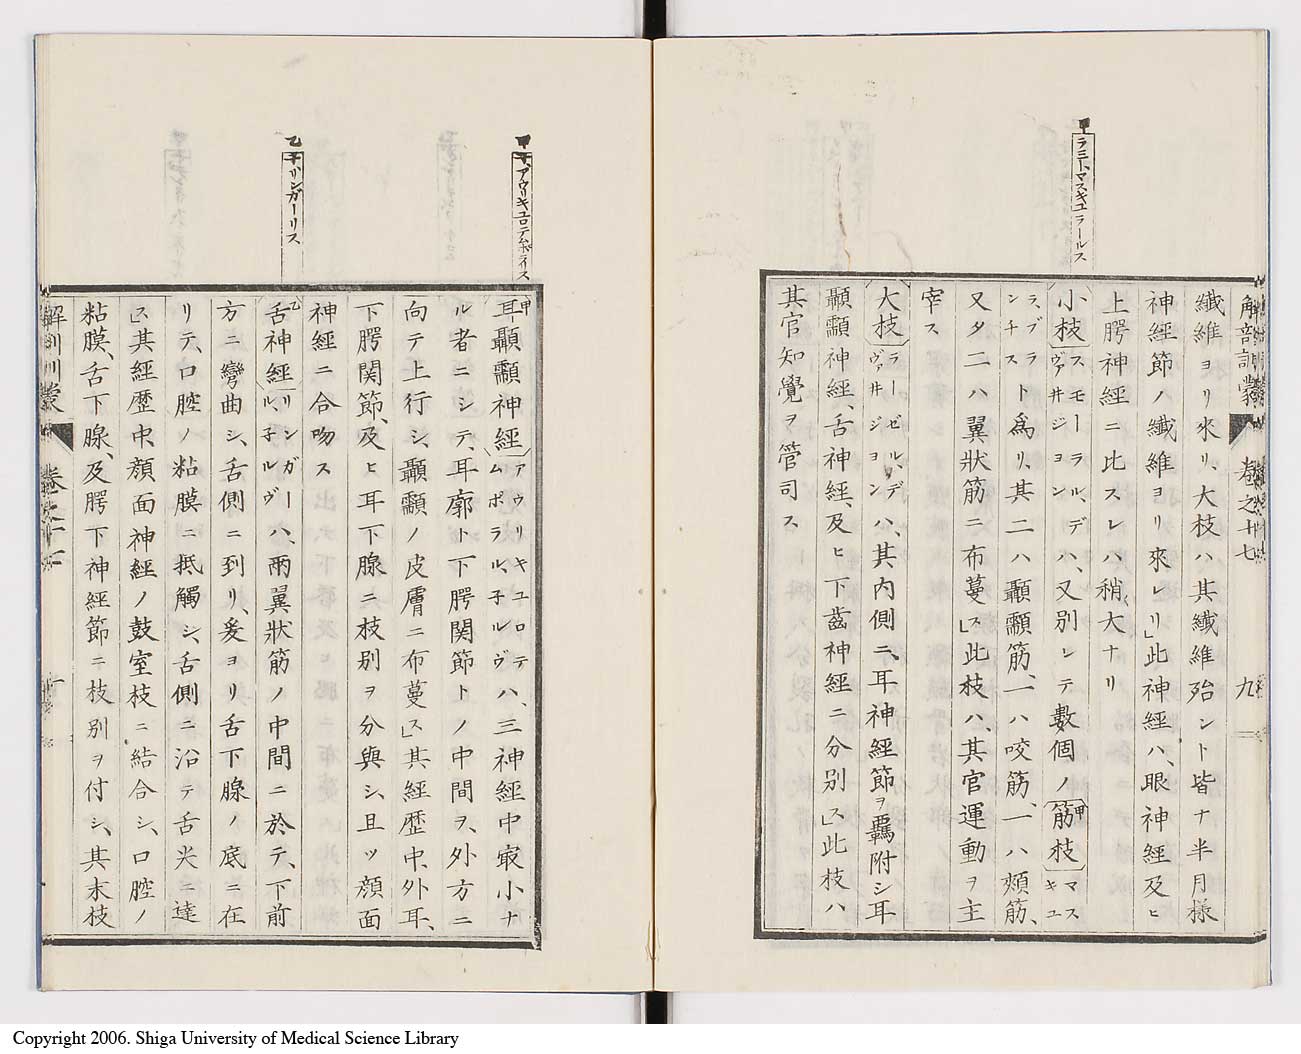 解剖訓蒙 卷之十七 九
甲 ラミトマスキユラールス
纖維ヨリ來リ、大枝ハ其纖維殆ント皆ナ半月樣
神經節ノ纖維ヨリ來レリ」此神經ハ、眼神經及ヒ
上腭神經ニ比スレハ稍大ナリ
小枝 スモーラル、デヴァ井ジョン ハ、又別レテ數個ノ 甲筋枝 マスキユ
ラブランチス ト爲リ、其二ハ顳顬筋、一ハ咬筋、一ハ頰筋、
又タ二ハ翼狀筋ニ布蔓ス」此枝ハ、其官運動ヲ主
宰ス
大枝 ラーゼル、デヴァ井ジョン ハ、其内側ニ、耳神經節ヲ羈附シ耳
顳顬神經、舌神經、及ヒ下齒神經ニ分別ス」此枝ハ
其官知覺ヲ管司ス
甲 子、アウリキュロテムポライス
乙 子リンガーリス
甲耳顳顬神經 アウリキユロテムポラル、子ルヴ ハ、三神經中㝡小ナ
ル者ニシテ、耳廓ト下腭関節トノ中間ヲ、外方ニ
向テ上行シ、顳顬ノ皮膚ニ布蔓ス」其經歷中、外耳、
下腭関節、及ヒ耳下腺ニ枝別ヲ分與シ、且ツ顔面
神經ニ合吻ス
乙舌神經 リンガール、子ルヴ ハ、兩翼狀筋ノ中間ニ於テ、下前
方ニ彎曲シ、舌側ニ到リ、爰ヨリ舌下腺ノ底ニ在
リテ、口腔ノ粘膜ニ抵觸シ、舌側ニ沿テ舌尖ニ達
ス」其經歷中、顔面神經ノ鼓室枝ニ結合シ、口腔ノ
粘膜、舌下腺、及腭下神經節ニ枝別ヲ付シ、其末枝
Copyright 2006. Shiga University of Medical Science Library